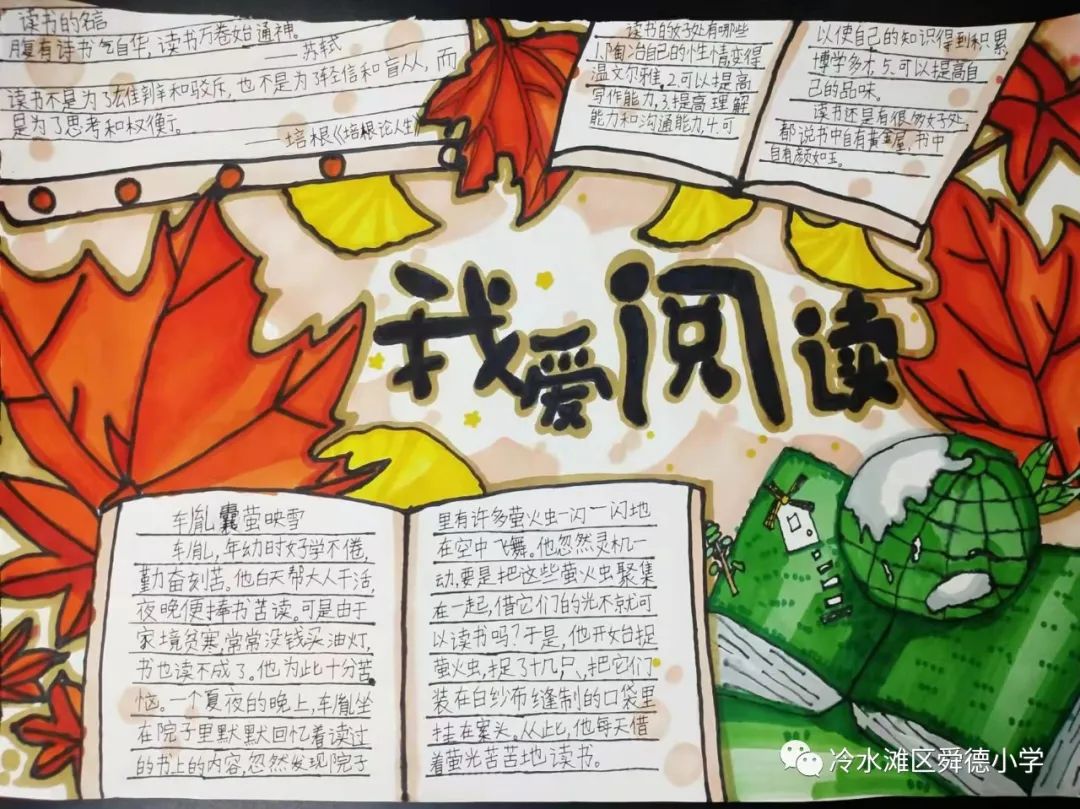 读书的名言
腹有诗书气自华，读书万卷始通神。
——苏轼
读书不是为了雄辩和驳斥，也不是为了轻信和盲从，而
是为了思考和权衡。
——培根《培根论人生》
读书的好处有哪些
1.陶冶自己的性情变得
温文尔雅.2.可以提高
写作能力,3.提高理解
能力和沟通能力.4.可
以使自己的知识得到积累,
博学多才.5.可以提高自
己的品味。
读书还是有很多好处
都说书中自有黄金屋,书中
自有颜如玉。
我爱阅读
车胤囊萤映雪
车胤,年幼时好学不倦,
勤奋刻苦。他白天帮大人干活,
夜晚便捧书苦读。可是由于
家境贫寒,常常没钱买油灯,
书也读不成了。他为此十分苦
恼。一个夏夜的晚上,车胤坐
在院子里默默回忆着读过
的书上的内容,忽然发现院子
里有许多萤火虫一闪一闪地
在空中飞舞。他忽然灵机一
动,要是把这些萤火虫聚集
在一起,借它们的光不就可
以读书吗?于是,他开始捉
萤火虫,捉了十几只,把它们
装在白纱布缝制的口袋里
挂在案头。从此,他每天借
着萤光苦苦地读书。
冷水滩区舜德小学